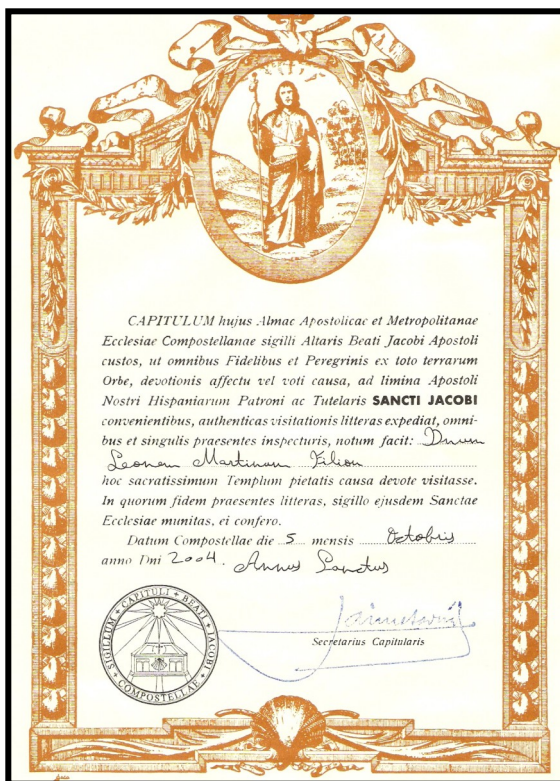 CAPITULUM hujus Almae Apostolicae et Metropolitanae
Ecclesiae Compostellanae sigilli Altaris Beati Jacobi Apostoli
custos, ut omnibus Fidelibus et Peregrinis ex toto terrarum
Orbe, devotionis affectu vel voti causa, ad limina Apostoli
Nostri Hispaniarum Patroni ac Tutelaris SANCTI JACOBI
convenientibus, authenticas visitationis litteras expediat, omni-
bus et singulis praesentes inspecturis, notum facit: Dnum
Leonem Martinum Filion
hoc sacratissimum Templum pietatis causa devote visitasse.
In quorum fidem praesentes litteras, sigillo ejusdem Sanctae
Ecclesiae munitas, ei confero.
Datum Compostellae die 5 mensis Octobris
anno Dni 2004. Annus Sanctus
SIGILLUM + CAPITULI + BEATI + JACOBI + COMPOSTELLAE +
Secretarius Capitularis